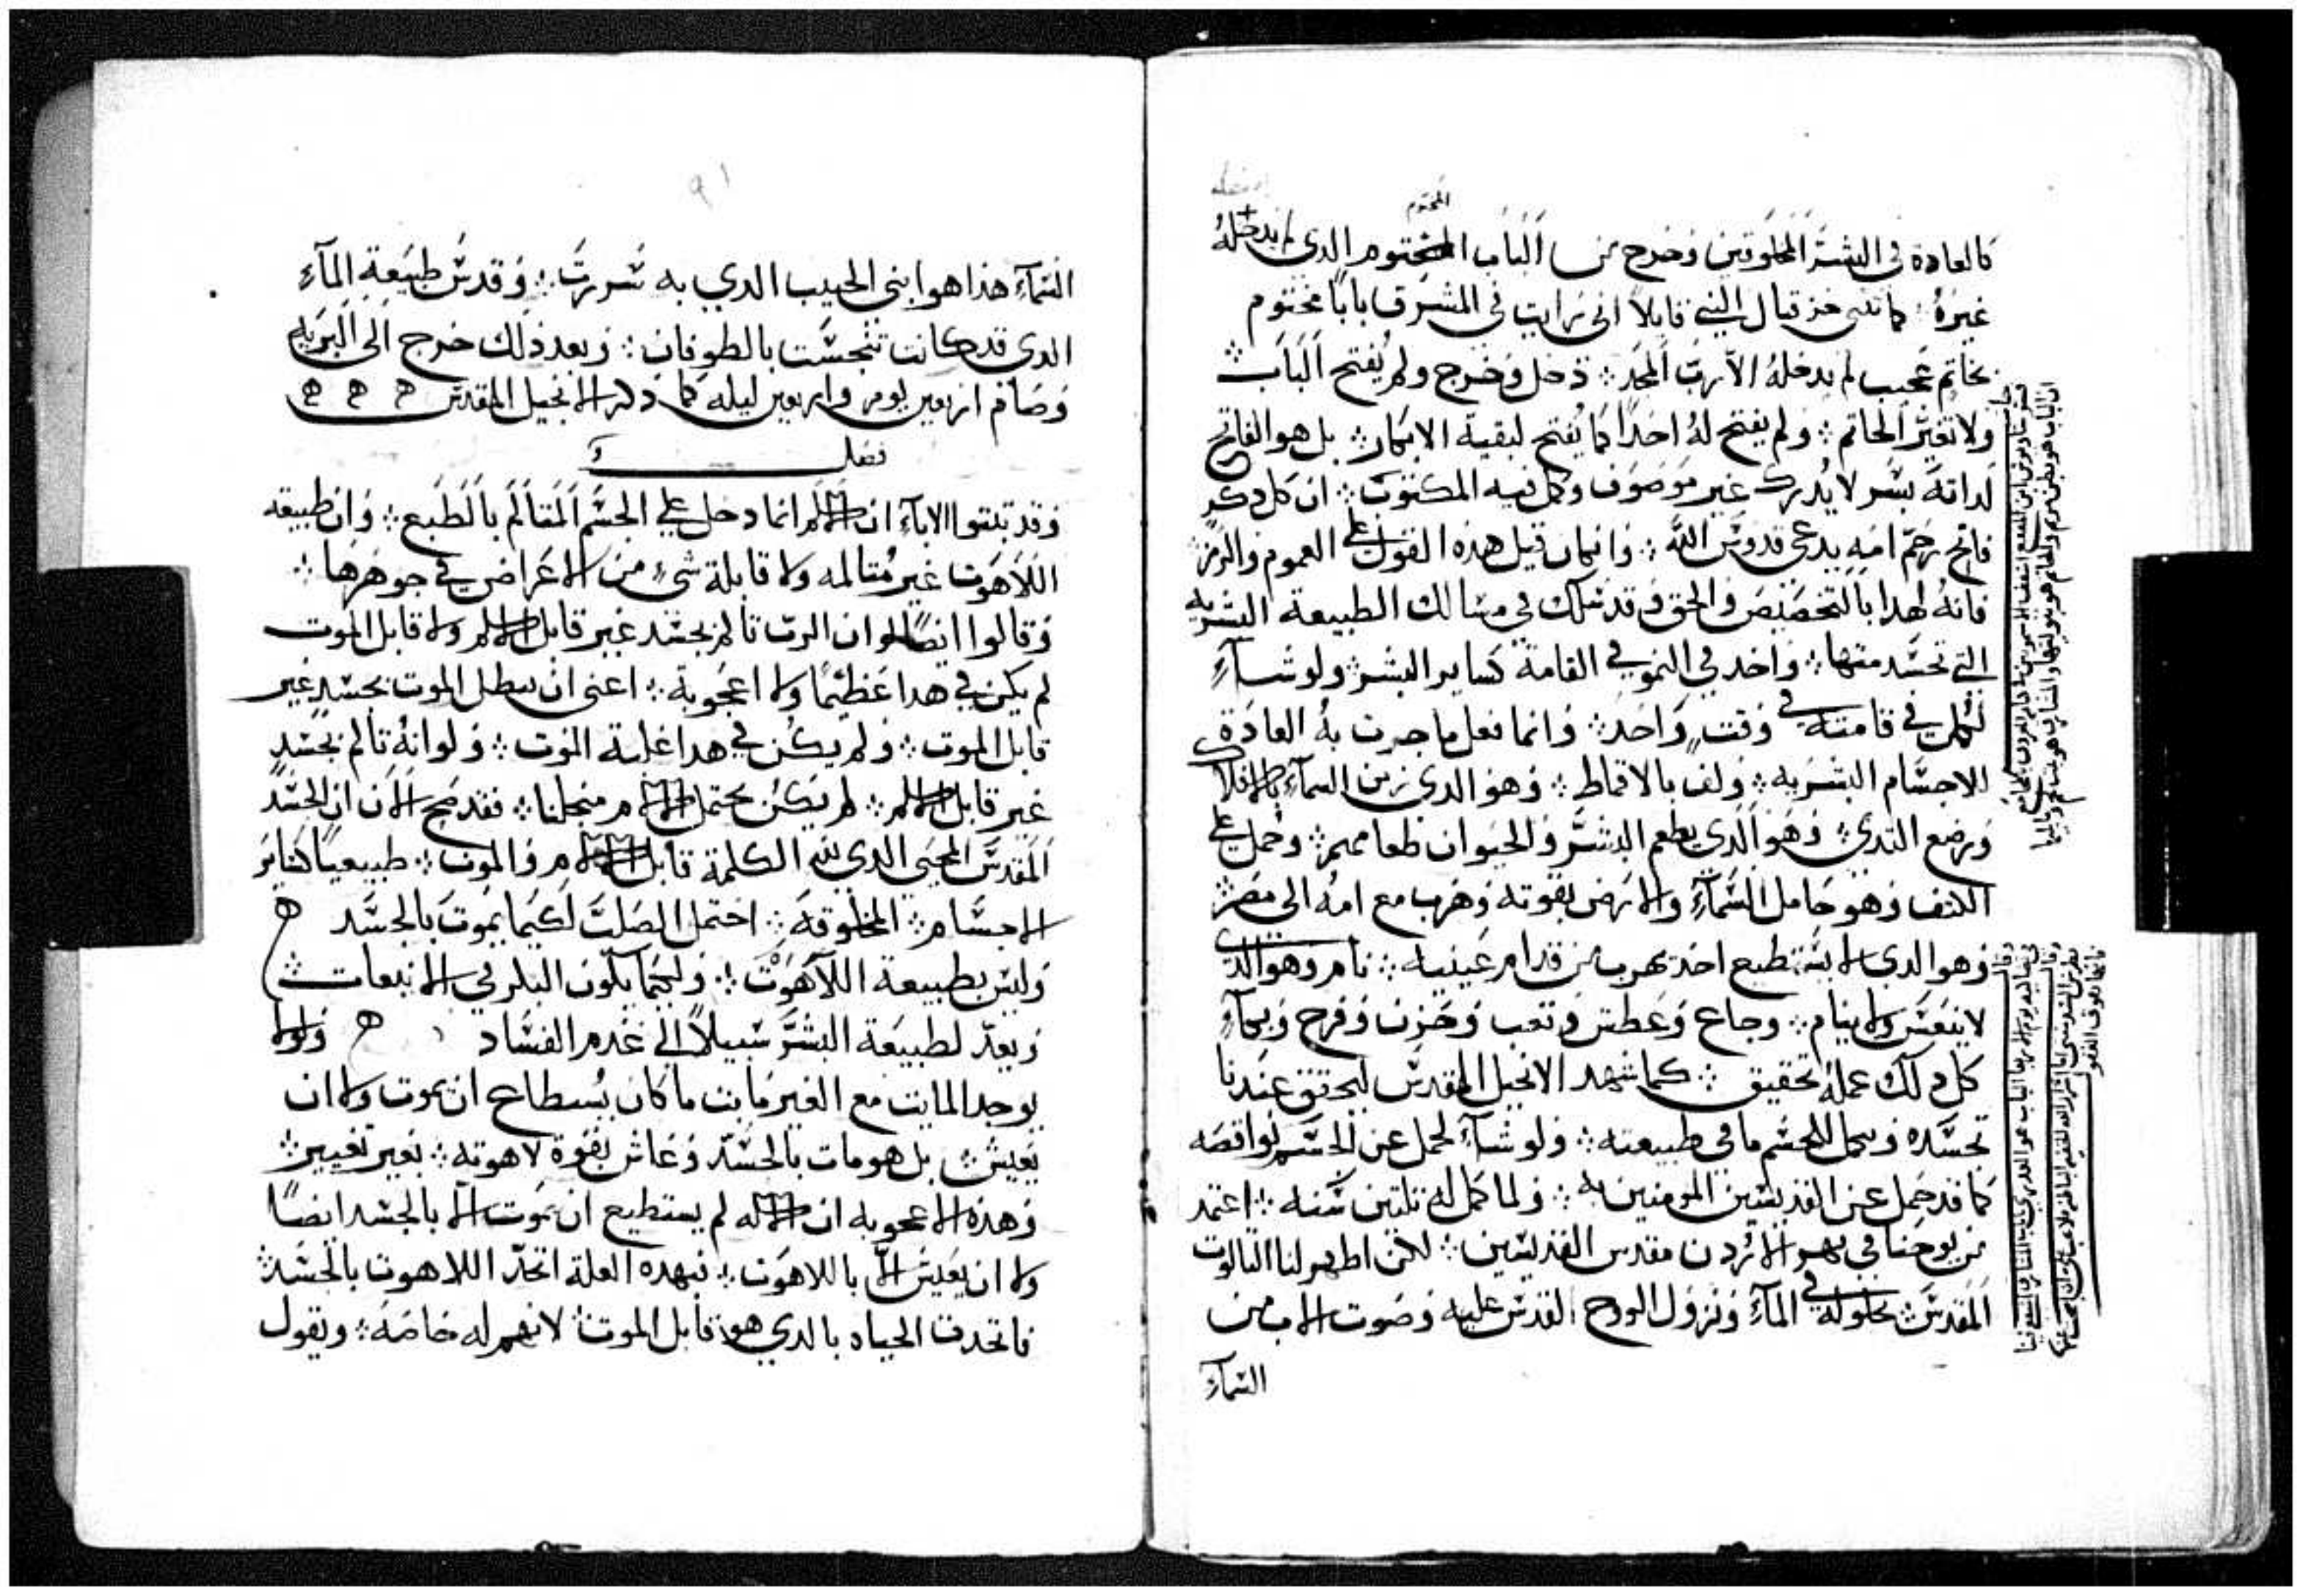 كالعادة في البشر المخلوقين وخرج من الباب المختوم الدي لم يدخله
المختوم
غيره ؛ كما تنبى حزقيال النبي قايلاً اني رايت في المشرق باباً مختوم
بخاتم عجيب لم يدخله الا رب المجد ؛ دخل وخرج ولم يفتح الباب ؛
ولا تغير الخاتم ؛ ولم يفتح له احداً كما يفتح لبقية الابكار ؛ بل هو الفاتح
لداته بسر لا يدرك غير موصوف وكمل فيه المكتوب ؛ ان كل دكر
فاتح رحم امه يدعى قدوس الله ؛ وان كان قيل هده القول على العموم والرمز ؛
فانه لهدا بالتخصيص والحق وقد سلك في مسالك الطبيعة البشريه
التي تجسد منها ؛ واخد في النمو في القامة كساير البشر ولو شآء
لكمل في قامته في وقت واحد ؛ وانما فعل ما جرت به العادة في
الاجسام البشريه ؛ ولف بالاقماط ؛ وهو الدي زين السمآء بالافلاك
ورضع التدي ؛ وهو الدي يطعم البشر والحيوان طعامهم ؛ وحمل على
الكتف وهو حامل السمآء والارض بقوته وهرب مع امه الى مصر ؛
وهو الدي لا يستطيع احد يهرب من قدام عينيه ؛ نام وهو الدي
لا ينعس ولا ينام ؛ وجاع وعطش وتعب وحزن وفرح وبكآء
كل دلك عمله تحقيق ؛ كما شهد الانجيل المقدس ليحقق عندنا
تجسده وكمل للجسم ما في طبيعته ؛ ولو شآء لحمل عن الجسم نواقصه
كما قد حمل عن القديسين المومنين به ؛ ولما كمل له تلتين سنه ؛ اعتمد
من يوحنا في نهر الاردن مقدس القديسين ؛ لكن اظهر لنا التالوت
المقدس ؛ بحلوله في المآء ونزول الروح القدس عليه وصوت الاب من
السمآء
السمآء هذا هو ابني الحبيب الدي به سررت ؛ وقدس طبيعة المآء
الدي قد كانت تنجست بالطوفان ؛ وبعد ذلك خرج الى البريه
وصام اربعين يوم واربعين ليله كما ذكر الانجيل المقدس
فصل
وقد تبتوا الابآء ان الالم انما دخل على الجسم المتالم بالطبع ؛ وان طبيعة
اللاهوت غير متالمه ولا قابلة شيء من الاعراض في جوهرها ؛
وقالوا ايضاً لو ان الرب تالم بجسد غير قابل الالم ولا قابل الموت
لم يكن في هدا عظيماً ولا اعجوبة ؛ اعني ان يبطل الموت بجسد غير
قابل الموت ؛ ولم يكن في هدا غلبة الموت ؛ ولو انه تالم بجسد
غير قابل الالم ؛ لم يكن يحتمل الالام من اجلنا ؛ فقد صح الان ان الجسد
المقدس المحيي الدي لله الكلمة قابل الالام والموت ؛ طبيعياً كساير
الاجسام ؛ المخلوقة ؛ احتمل الصلب لكيما يموت بالجسد
وليس بطبيعة اللاهوت ؛ ولكيما يكون البكر في الانبعات ؛
ويعد لطبيعة البشر سبيلاً الى عدم الفساد ولولا
يوجد المايت مع الغير مايت ما كان يستطاع ان يموت ولا ان
يعيش ؛ بل هو مات بالجسد وعاش بقوة لاهوته ؛ بغير تغيير ؛
وهذه الاعجوبه ان الاله لم يستطيع ان يموت الا بالجسد ايضاً
ولا ان يعيش الا باللاهوت ؛ فبهده العلة اتحد اللاهوت بالجسد ؛
فاتحدت الحياه بالدي هو قابل الموت ؛ لانهم له خاصة ؛ ويقول